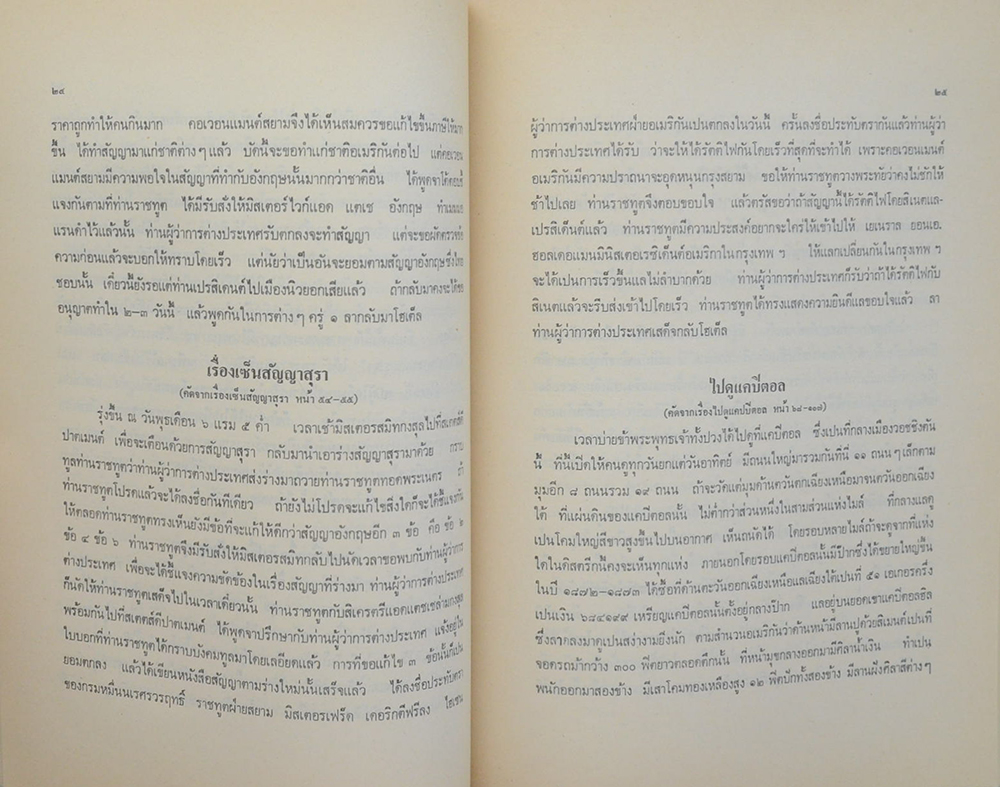 ๒๔
ราคาถูกทำให้คนกินมาก คอเวอนแมนต์สยามจึงได้เห็นสมควรขอแก้ไขขึ้นภาษีให้มาก
ขึ้น ได้ทำสัญญามาแก่ชาติต่างๆ แล้ว บัดนี้จะขอทำแก่ชาติอเมริกันต่อไป แต่คอเวอน
แมนต์สยามมีความพอใจในสัญญาที่ทำกับอังกฤษนั้นมากกว่าชาติอื่น ได้พูดจาโต้ตอบชี้
แจงกันตามที่ท่านราชทูต ได้มีรับสั่งให้มิสเตอร์ไวก์แอด แตเช อังกฤษ ทำเมมเม
แรนดำไว้แล้วนั้น ท่านผู้ว่าการต่างประเทศรับตกลงจะทำสัญญา แต่จะขอผัดตรวจข้อ
ความก่อนแล้วจะบอกให้ทราบโดยเร็ว แต่นัยว่าเป็นอันจะยอมตามสัญญาอังกฤษซึ่งไทย
ชอบนั้น เดี๋ยวนี้ยังรอแต่ท่านเปรสิเดนต์ไปเมืองนิวยอกเสียแล้ว ถ้ากลับมาคงจะได้ขอ
อนุญาตทำใน ๒-๓ วันนี้ แล้วพูดกันในการต่างๆ ครู่ ๑ ลากลับมาโฮเต็ล
เรื่องเซ็นสัญญาสุรา
(คัดจากเรื่องเซ็นสัญญาสุรา หน้า ๕๔-๕๕)
รุ่งขึ้น ณ วันพุธเดือน ๖ แรม ๕ ค่ำ เวลาเช้ามิสเตอรสมิทกงสุลไปที่สเตตส์ดิ
ปาดเมนต์ เพื่อจะเตือนด้วยการสัญญาสุรา กลับมานำเอาร่างสัญญาสุรามาด้วย กราบ
ทูลท่านราชทูตว่าท่านผู้ว่าการต่างประเทศส่งร่างมาถวายท่านราชทูตทอดพระเนตร ถ้า
ท่านราชทูตโปรดแล้วจะได้ลงชื่อกันทีเดียว ถ้ายังไม่โปรดจะแก้ไขสิ่งใดก็จะได้ชี้แจงกัน
ให้ตลอดท่านราชทูตทรงเห็นยังมีข้อที่จะแก้ให้ดีกว่าสัญญาอังกฤษอีก ๓ ข้อ คือ ข้อ ๒
ข้อ ๔ ข้อ ๖ ท่านราชทูตจึงมีรับสั่งให้มิสเตอรสมิทกลับไปนัดเวลาขอพบกับท่านผู้ว่าการ
ต่างประเทศ เพื่อจะได้ชี้แจงความขัดข้องในเรื่องสัญญาที่ร่างมา ท่านผู้ว่าการต่างประเทศ
ก็นัดให้ท่านราชทูตเสด็จไปในเวลาเดี๋ยวนั้น ท่านราชทูตกับสิเครตรีแอดแตเชล่ามกงสุล
พร้อมกันไปที่สเตตส์ดิปาดเมนต์ ได้พูดจาปรึกษากับท่านผู้ว่าการต่างประเทศ แจ้งอยู่ใน
ใบบอกที่ท่านราชทูตได้กราบบังคมทูลมาโดยเลอียดแล้ว การที่ขอแก้ไข ๓ ข้อนั้นก็เปน
ยอมตกลง แล้วได้เขียนหนังสือสัญญาตามร่างใหม่นั้นเสร็จแล้ว ได้ลงชื่อประทับตรา
ของกรมหมื่นนเรศรวรฤทธิ์ ราชทูตฝ่ายสยาม มิสเตอรเฟร็ด เดอริกตีฟรีลง ไฮเซน
๒๕
ผู้ว่าการต่างประเทศฝ่ายอเมริกันเปนตกลงในวันนี้ ครั้นลงชื่อประทับตรากันแล้วท่านผู้ว่า
การต่างประเทศได้รับ ว่าจะให้ได้รัตติไฟกันโดยเร็วที่สุดที่จะทำได้ เพราะคอเวอนเมนต์
อเมริกันมีความปราถนาจะอุดหนุนกรุงสยาม ขอให้ท่านราชทูตวางพระทัยว่าคงไม่ชักให้
ช้าไปเลย ท่านราชทูตจึงตอบขอบใจ แล้วตรัสขอว่าถ้าสัญญานี้ได้รัตติไฟโดยสิเนตแล-
เปรสิเด็นต์แล้ว ท่านราชทูตมีความประสงค์อยากจะใคร่ให้เข้าไปให้ เยเนราล ยอนเอ.
ฮอลเดอแมนมินิสเตอเรซิเด็นต์อเมริกาในกรุงเทพ ฯ ให้แลกเปลี่ยนกันในกรุงเทพ ฯ
จะได้เปนการเร็วขึ้นแลไม่ลำบากด้วย ท่านผู้ว่าการต่างประเทศก็รับว่าถ้าได้รัตติไฟกับ
สิเนตแล้วจะรีบส่งเข้าไปโดยเร็ว ท่านราชทูตได้ทรงแสดงความยินดีแลขอบใจแล้ว ลา
ท่านผู้ว่าการต่างประเทศเสด็จกลับโฮเต็ล
ไปดูแคปิตอล
(คัดจากเรื่องไปดูแคปปิตอล หน้า ๖๔-๑๐๗)
เวลาบ่ายข้าพระพุทธเจ้าทั้งปวงได้ไปดูที่แคปิตอล ซึ่งเปนที่กลางเมืองวอชชิงตัน
นี้ ที่นี้เปิดให้คนดูทุกวันยกแต่วันอาทิตย์ มีถนนใหญ่มารวมกันที่นี่ ๑๑ ถนนๆ เล็กตาม
มุมอีก ๘ ถนนรวม ๑๙ ถนน ถ้าจะวัดแต่มุมด้านตวันตกเฉียงเหนือมาจนตวันออกเฉียง
ใต้ ที่แผ่นดินของแคปิตอลนั้น ไม่ต่ำกว่าส่วนหนึ่งในสามส่วนแห่งไมล์ ที่กลางแลดู
เปนโคมใหญ่สีขาวสูงขึ้นไปบนอากาศ เห็นถนัดได้ โดยรอบหลายไมล์ถ้าจะดูจากที่แห่ง
ใดในดิสตริกนี้คงจะเห็นทุกแห่ง ภายนอกโดยรอบแคปิตอลนั้นมีปากซึ่งได้ขยายใหญ่ขึ้น
ในปี ๑๘๗๒-๑๘๗๓ ได้ซื้อที่ด้านตะวันออกเฉียงเหนือแลเฉียงใต้เปนที่ ๕๑ เอเกอรครึ่ง
เปนเงิน ๖๘๔๑๙๙ เหรียญแคปิตอลนั้นตั้งอยู่กลางป๊าก แลอยู่บนยอดเขาแคปิตอลฮิล
ซึ่งลาดลงมาดูเปนสง่างามยิ่งนัก ตามสำนวนอเมริกันว่าด้านหน้ามีลานปูด้วยสิเมนต์เปนที่
จอดรถม้ากว้าง ๓๐๐ ฟีตยาวตลอดตึกนั้น ที่หน้ามุขกลางออกมามีศิลาน้ำเงิน ทำเปน
พนักออกมาสองข้าง มีเสาโคมทองเหลืองสูง ๑๒ ฟีตปักทั้งสองข้าง มีลานฝังศิลาสีต่างๆ